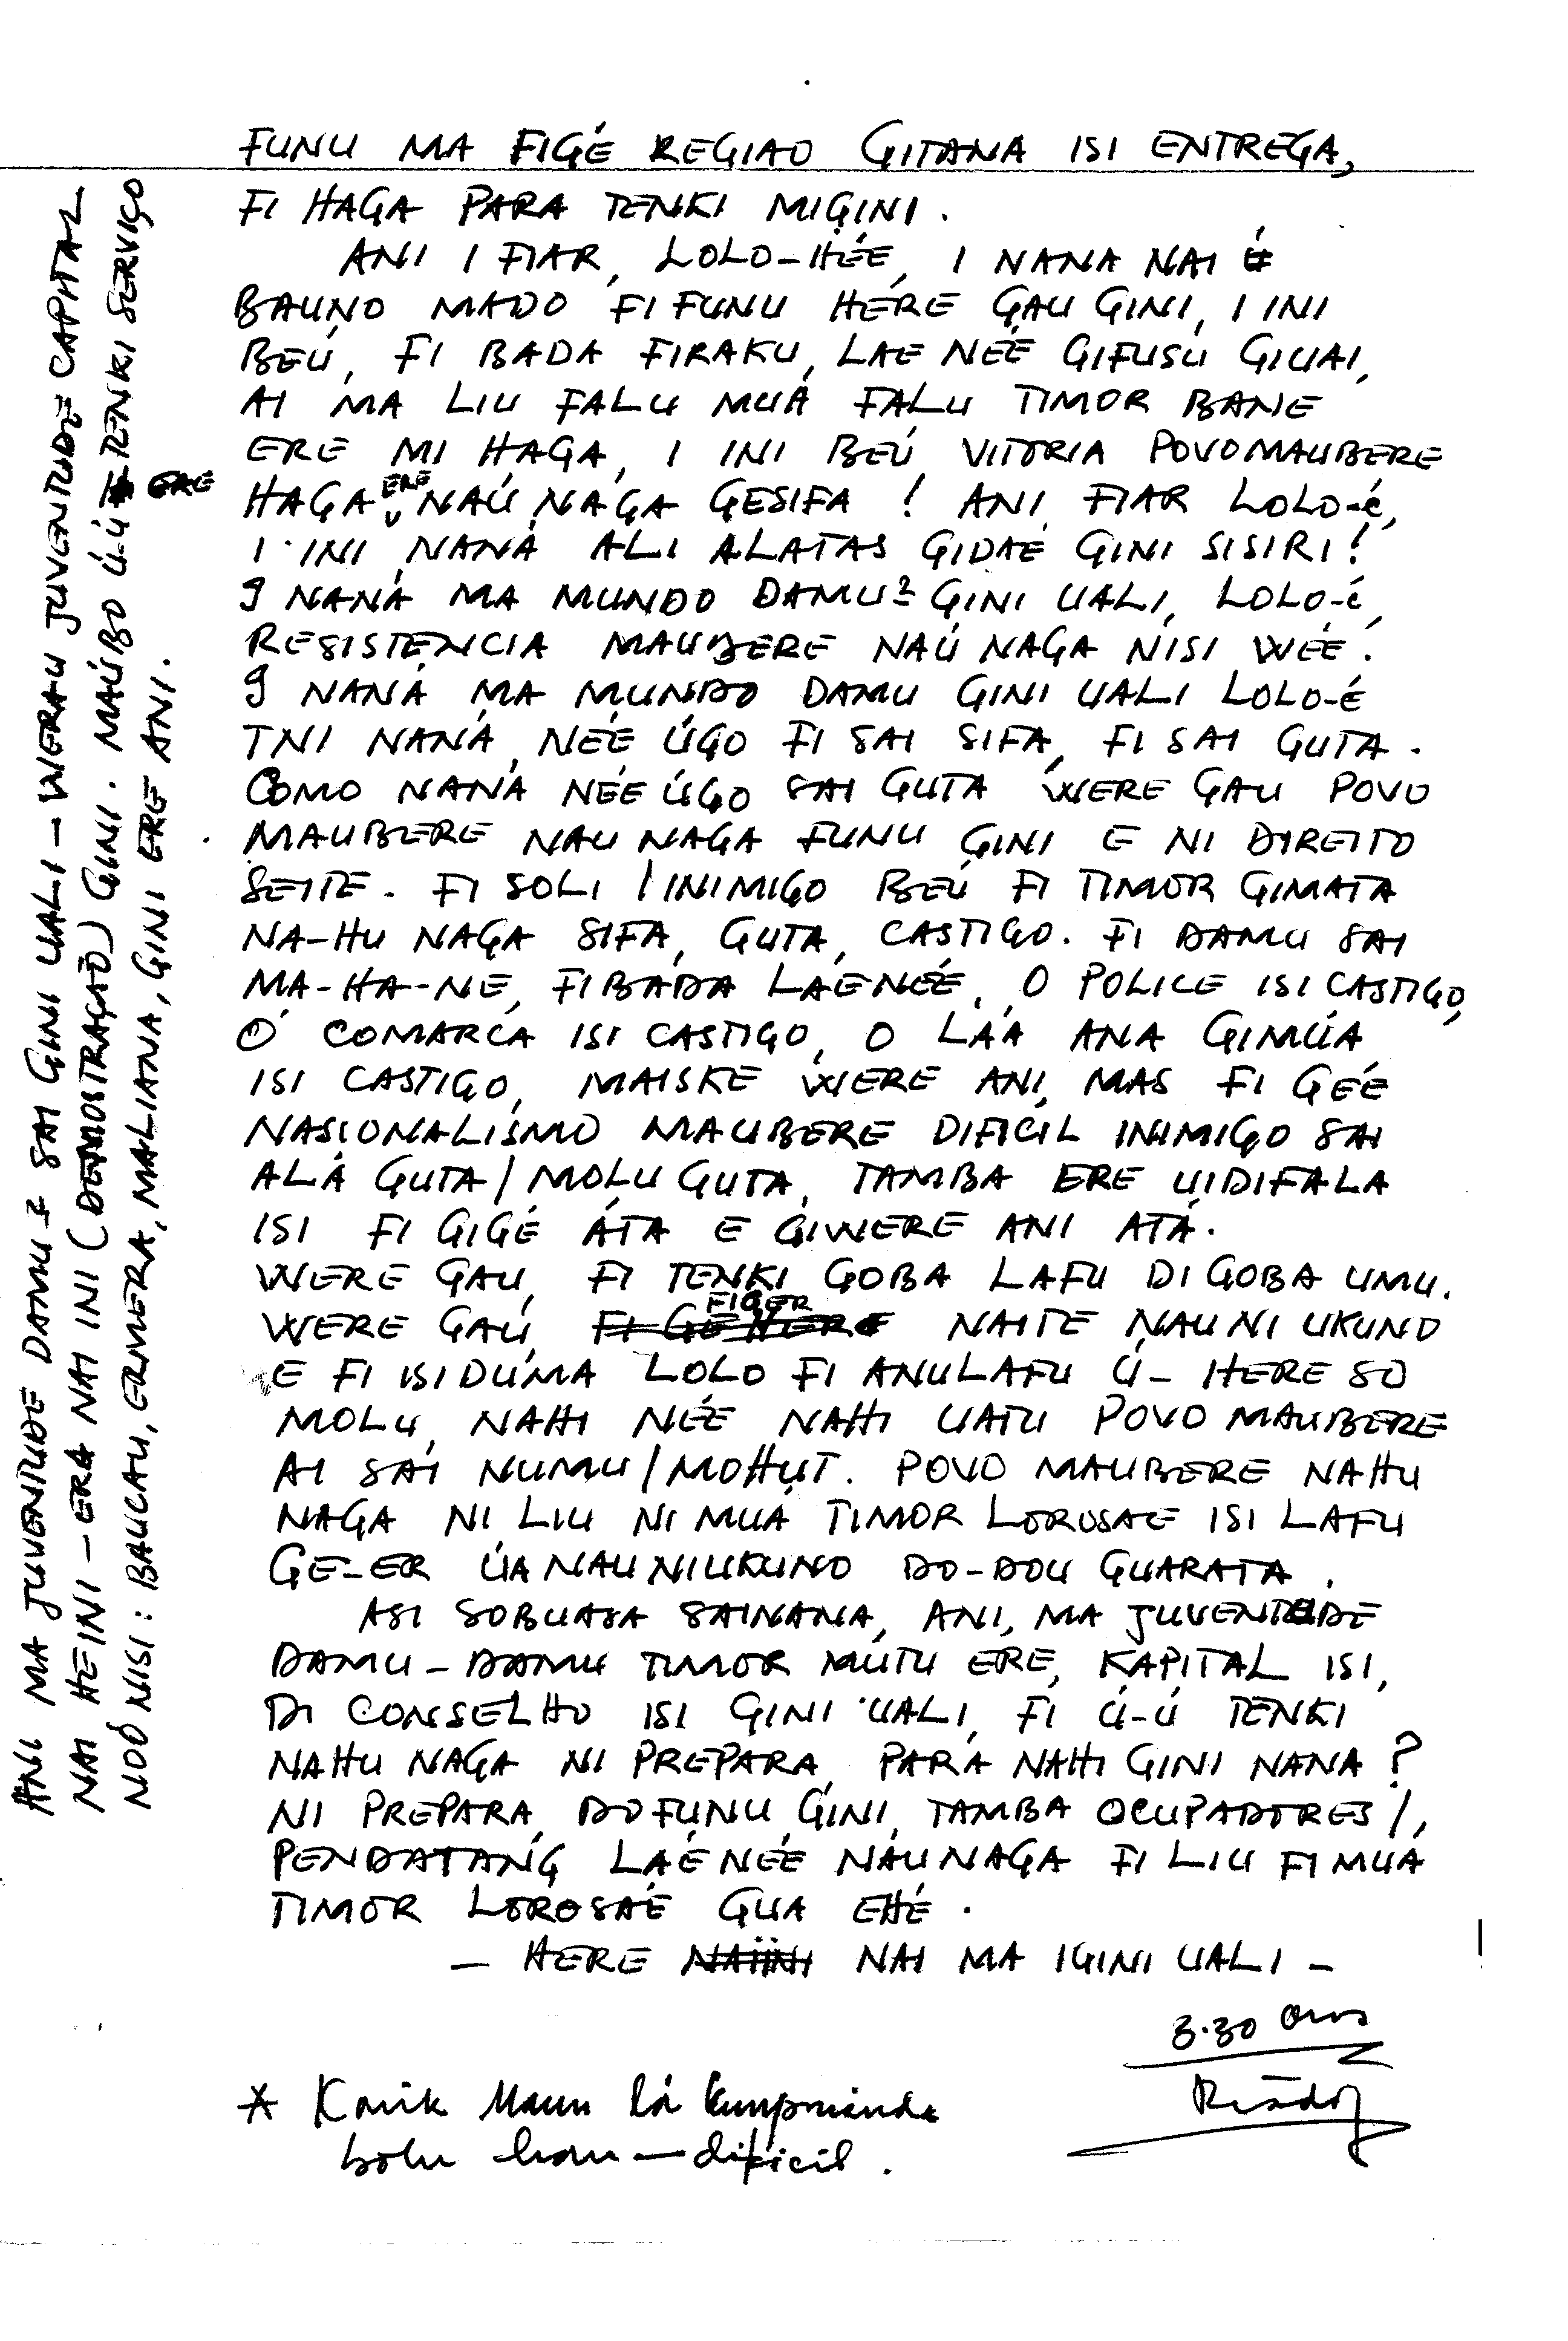 FUNU MA FIGÉ REGIAO GITANA ISI ENTREGA,
FI HAGA PARA TENKI MIGINI.
ANI I FIAR, LOLO-HÉE, I NANA NAI É
BAUNO MADO FI FUNU HÉRE GAU GINI, I INI
BEÚ, FI BADA FIRAKU, LAE NÉE GIFUSU GIUAI,
AI MA LIU FALU MUÁ FALU TIMOR BANE
ERE MI HAGA, I INI BEÚ VITORIA POVO MAUBERE
HAGA ERE NAÚ NAGA GESIFA! ANI, FIAR LOLO-É,
I INI NANÁ ALI ALATAS GIDAÉ GINI SISIRI!
I NANÁ MA MUNDO DAMU2 GINI UALI, LOLO-É,
RESISTÊNCIA MAUBERE NAÚ NAGA NISI WÉE.
I NANÁ MA MUNDO DAMU GINI UALI LOLO-É
INI NANÁ, NÉE ÚGO FI SAI SIFA, FI SAI GUTA.
COMO NANÁ NÉE ÚGO SAI GUTA WERE GAU POVO
MAUBERE NAU NAGA FUNU GINI E NI DIREITO
SEITE. FI SOLI / INIMIGO BEÚ FI TIMOR GIMATA
NA-HU NAGA SIFA, GUTA, CASTIGO. FI DAMU SAI
MA-HA-NE, FI BADA LAÉNÉE, O POLICE ISI CASTIGO,
O COMARCA ISI CASTIGO, O LÁA ANA GIMÚA
ISI CASTIGO, MAISKE WERE ANI, MAS FI GÉE
NASIONALISMO MAUBERE DIFICIL INIMIGO SAI
ALÁ GUTA / MOLU GUTA, TAMBA ERE UIDIFALA
ISI FI GIGÉ ÁTA E GIWERE ANI ATÁ.
WERE GAU, FI TENKI GOBA LAFU DI GOBA UMU.
WERE GAÚ, FIGER NAITE NAU NI UKUNO
E FI ISI DÚMA LOLO FI ANULAFU Ú- HERE SO
MOLU, NAHI NÉE NAHI UATU POVO MAUBERE
AI SAI NUMU / MOHUT. POVO MAUBERE NAHU
NAGA NI LIU NI MUÁ TIMOR LOROSAE ISI LAFU
GE-ER ÚA NAU NI UKUNO DO-DOU GUARATA.
ASI SOBUASA SAINANA, ANI, MA JUVENTUDE
DAMU-DAMU TIMOR MUTU ERE, KAPITAL ISI,
DI CONSELHO ISI GINI UALI, FI Ú-Ú TENKI
NAHU NAGA NI PREPARA, PARA NAHI GINI NANA?
NI PREPARA, DO FUNU GINI, TAMBA OCUPADORES /,
PENDATANG LAÉ NÉE NAU NAGA FI LIU FI MUA
TIMOR LOROSAÉ GUA EHÉ.
– HERE NAI MA IGINI UALI –
3.30 OTL
* Karik Maun lá kumpriende
bolu hau – dificil.
ANI MA JUVENTUDE DAMU 2 SAI GINI UALI – WERAU JUVENTUDE CAPITAL
NAI HEINI – ERA NAI INI (DEMOSTRAÇÃO) GINI. MAÚBO Ú-Ú TENKI SERVIÇO ERE
NOÓ NISI: BAUCAU, ERMERA, MALIANA, GINI ERE ANI.